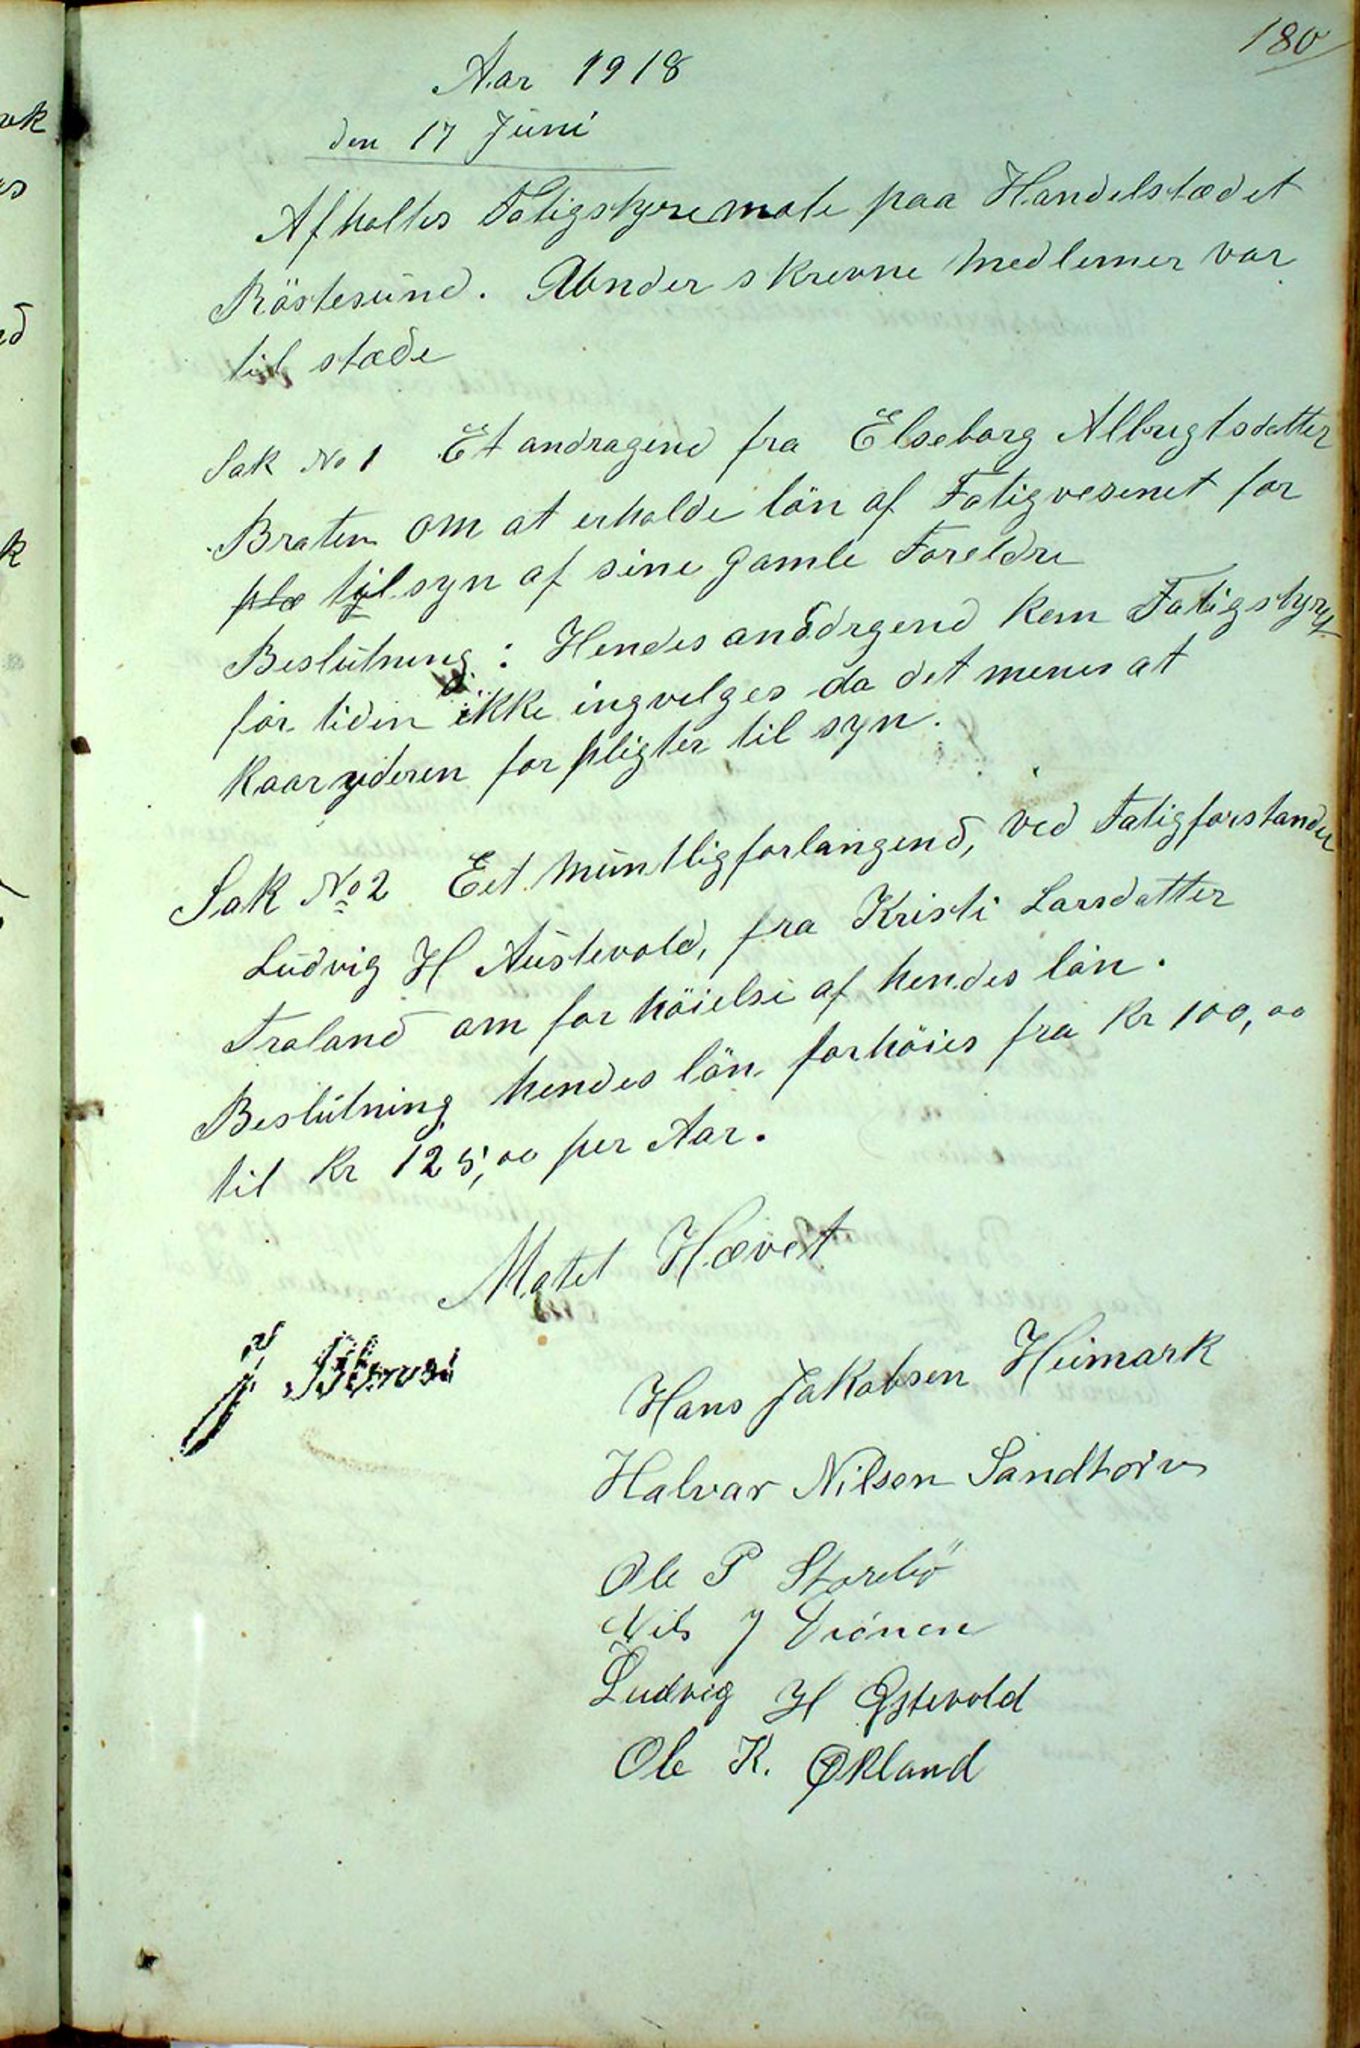 180
Aar 1918
den 17 Juni
Afholtes Fatigstyremøte paa Handelstædet
Röstesund. Under skrevne medlemer var
til stæde
Sak No 1 Et andragend fra Elseborg Albregtsdatter
Braten om at erholde lön af Fatigvesenet for
tilsyn af sine gamle Foreldre
Beslutning: Hendes anddragend kan Fatigstyret
för tiden ikke ingvelges da det menes at
Kaaryderen for pligter til syn.
Sak No 2 Eet muntligforlangend, ved Fatigforstander
Ludvig H Austevold, fra Kristi Larsdatter
Troland om for höielse af hendes lön.
Beslutning hendes lön forhöies fra Kr 100,00
til Kr 125,00 per Aar.
Møtet Hævet
J
Hans Jakobsen Heimark
Halvar Nilsen Sandtorv
Ole P Storebö
Nils J Drönen
Ludvig H Østevold
Ole K. Økland